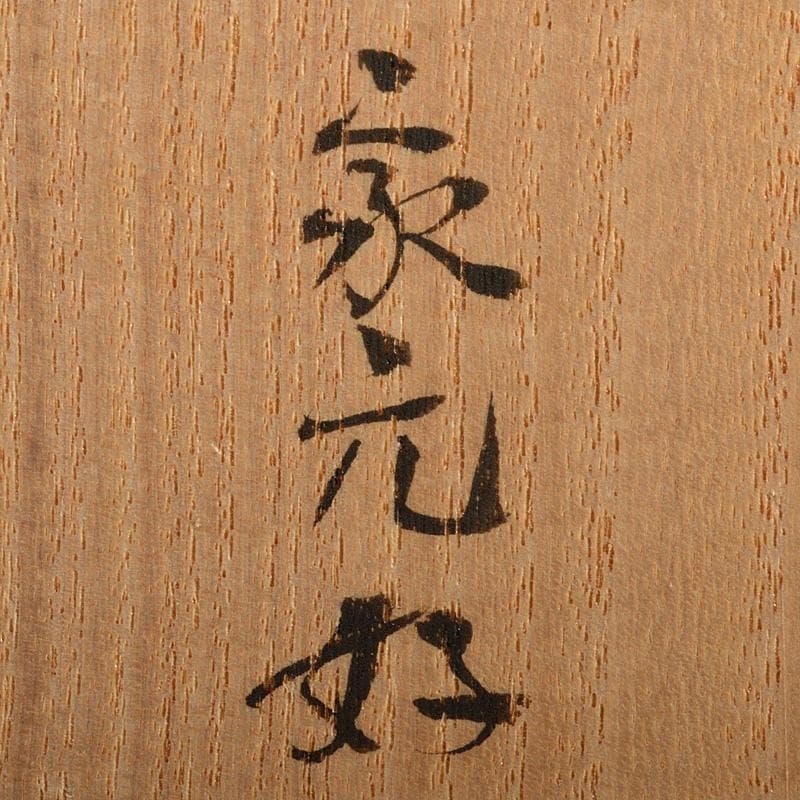 家元好